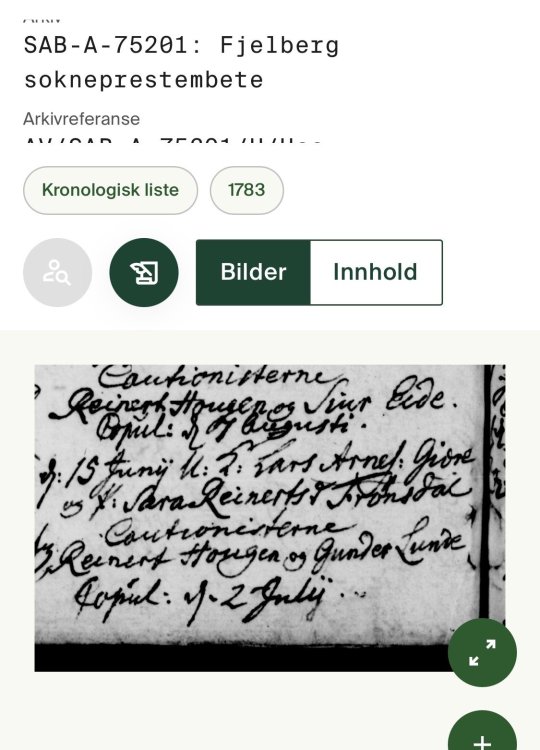 SAB-A-75201: Fjelberg
sokneprestembete
Arkivreferanse
Kronologisk liste
1783
Bilder
Innhold
Cautionisterne
Reinert Hougen og Siur Eide.
Copul: d. Augusti.
d: 15 Junij U: K: Lars Arnes: Giøre
og P: Sara Reinertsd Frønsdal
Cautionisterne
Reinert Hougen og Gunder Lunde
Copul: d. 2 Julij